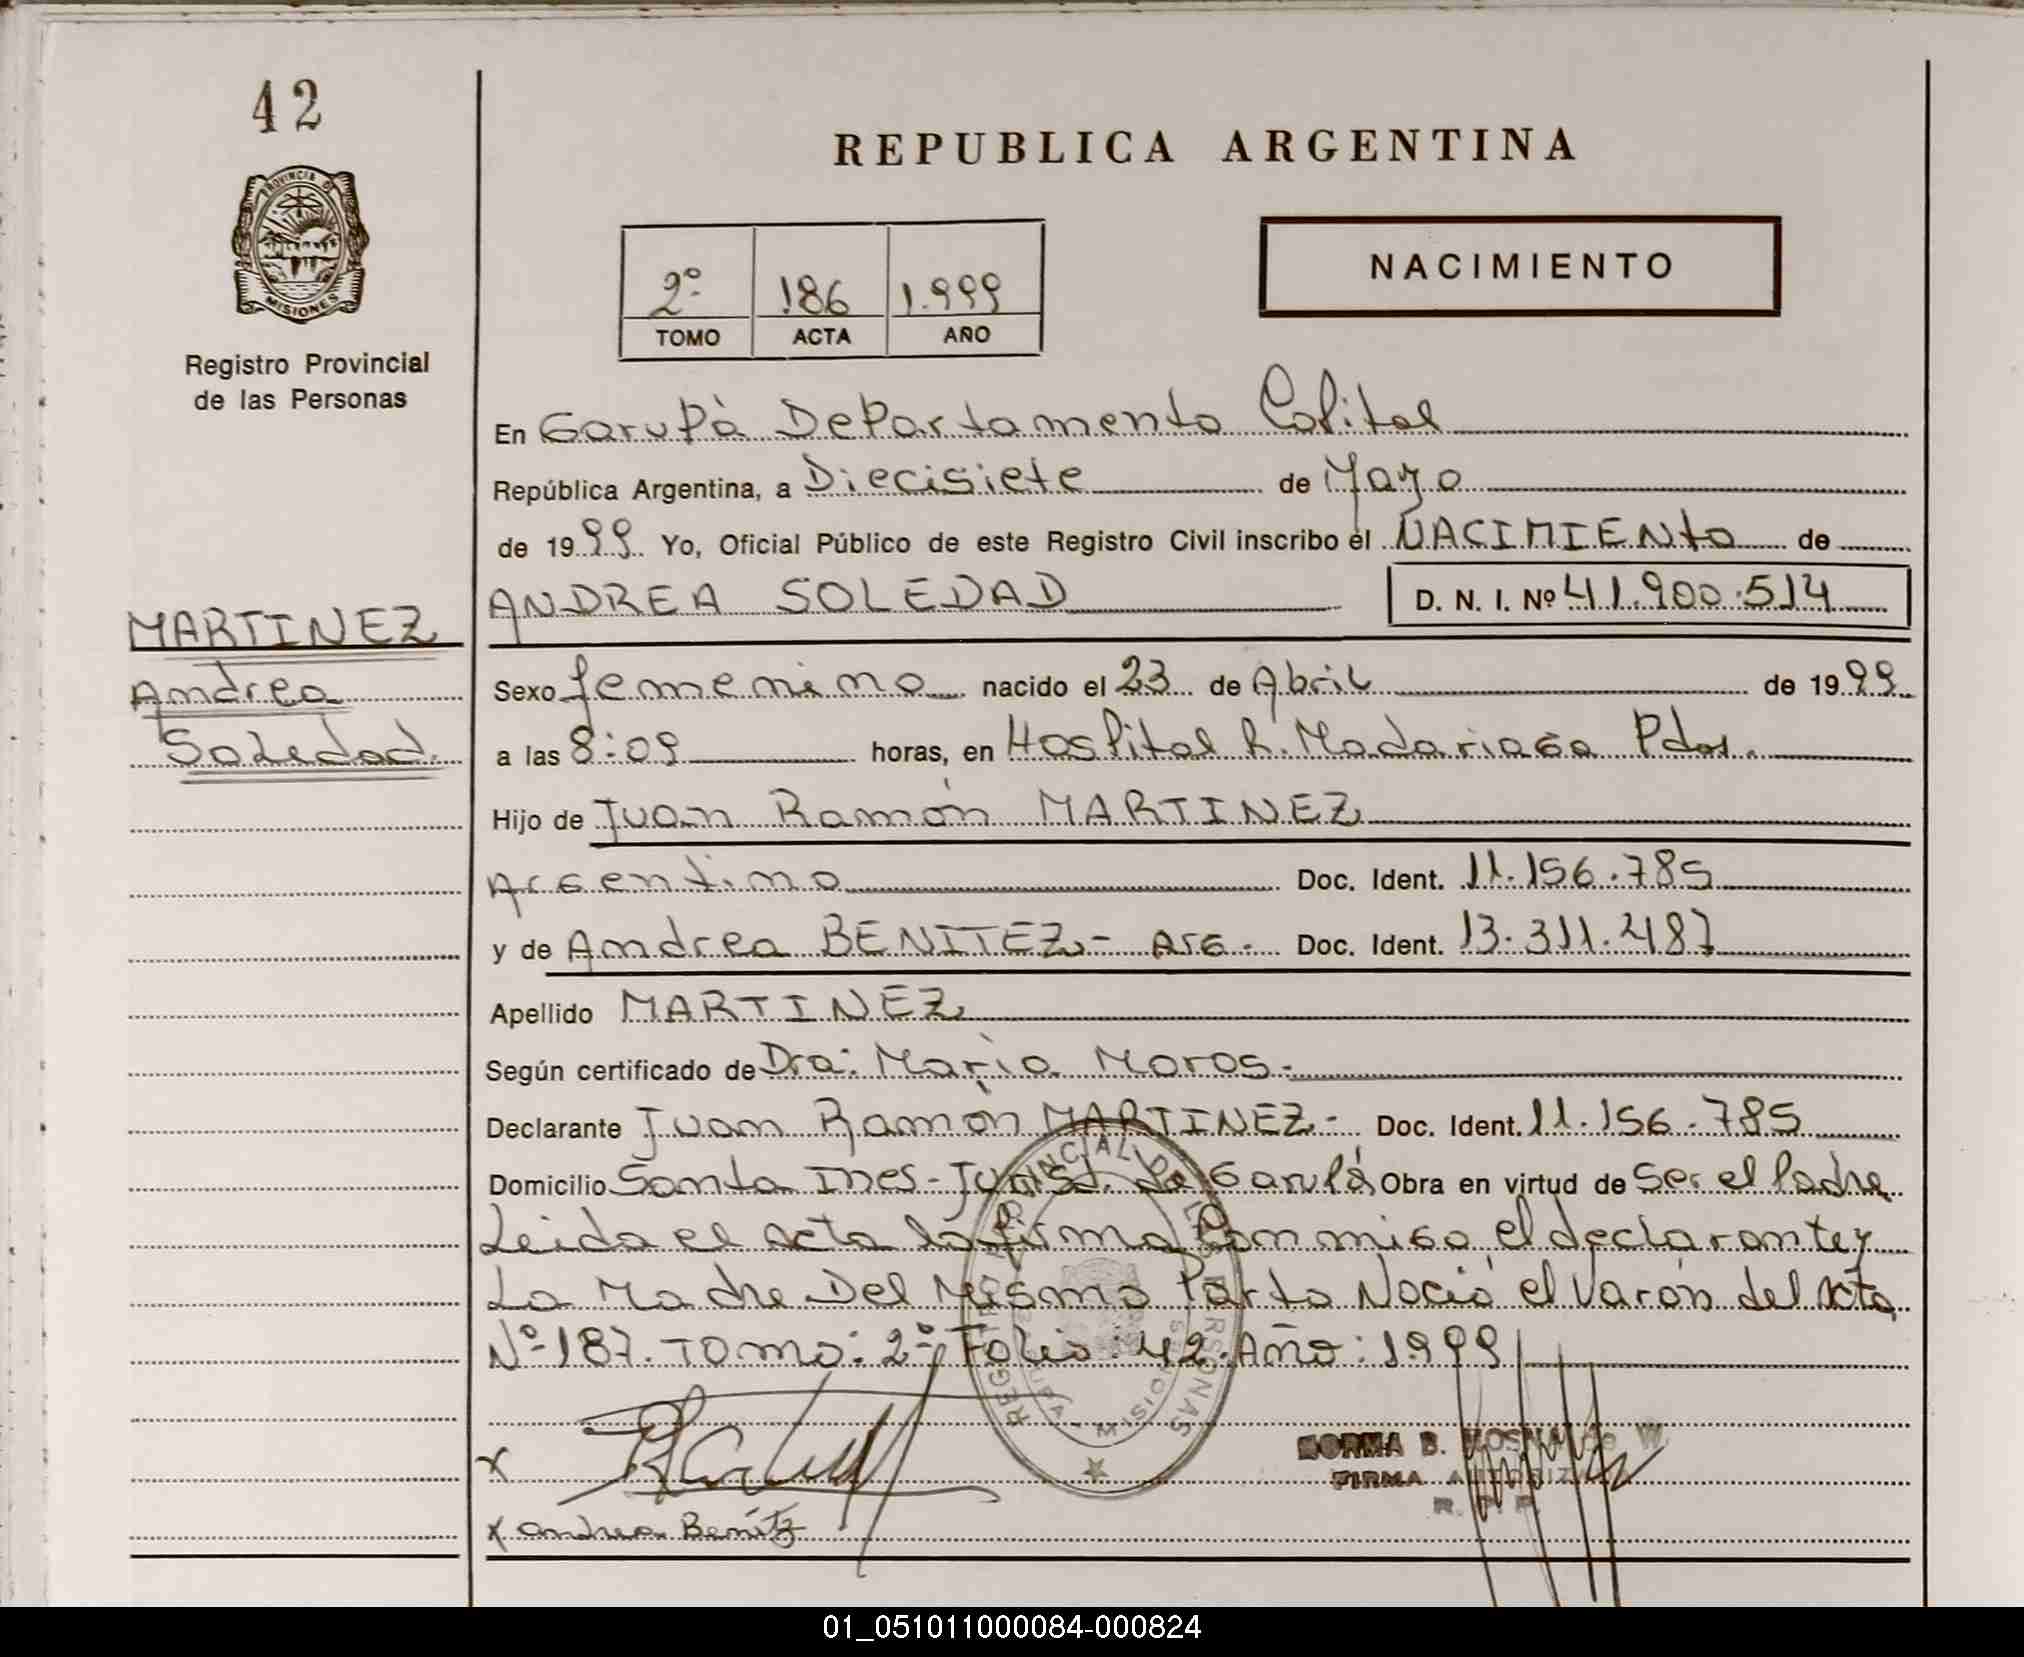 42
PROVINCIA DE
MISIONES
Registro Provincial
de las Personas
REPUBLICA ARGENTINA
2º 186 1.999
TOMO ACTA AÑO
NACIMIENTO
En Garupà Departamento Capital
República Argentina, a Diecisiete de Mayo
de 1999 Yo, Oficial Público de este Registro Civil inscribo el NACIMIENto de
ANDREA SOLEDAD D. N. I. Nº 41.900.514
MARTINEZ
Andrea
Soledad.
Sexo femenino nacido el 23 de Abril de 1999
a las 8:09 horas, en Hospital R. Madariaga Pdas.
Hijo de Juan Ramón MARTINEZ
Argentino Doc. Ident. 11.156.785
y de Andrea BENITEZ.- Arg. Doc. Ident. 13.311.487
Apellido MARTINEZ
Según certificado de Dra: Maria Moros.
Declarante Juan Ramón MARTINEZ- Doc. Ident. 11.156.785
Domicilio Santa Ines-Jurisd. de Garupá Obra en virtud de Ser el Padre
Leida el acta la firma Conmigo el declarante y
La Madre Del Mismo Parto Nació el Varón del Acta
Nº 187. Tomo: 2º Folio: 42. Año: 1999
REGISTRO PROVINCIAL DE LAS PERSONAS
MISIONES
x
NORMA B. de W.
FIRMA AUTORIZADA
R. P. P.
x andrea Benítz
01_051011000084-000824